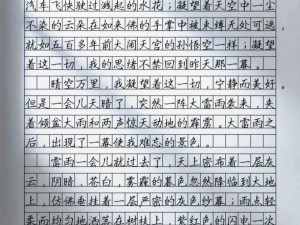 汽车飞快驶过溅起的水花；凝望着天空中一尘
不染的云朵在如来佛的手掌中被束缚无处可逃，
就如五百多年前大闹天宫的孙悟空一样；凝望
着这一切，我的思绪不禁回到昨天那一幕。
晴空万里，我凝望着这一切，宁静而美好。
但是一会儿天暗了，突然一阵大雷雨袭来，伴
着倾盆大雨和两声惊天动地的霹雳。大雷雨之
后，出现了一幕使我难忘的景色。
雷雨一会儿就过去了，天上密布着一层灰
云，阴暗、苍白，雾霾的暮色忽然降临到大地
上，仿佛垂挂着一层严密的灰色纱幕；雨点轻
柔而均匀地洒落在树枝上，紫红色的闪电一次